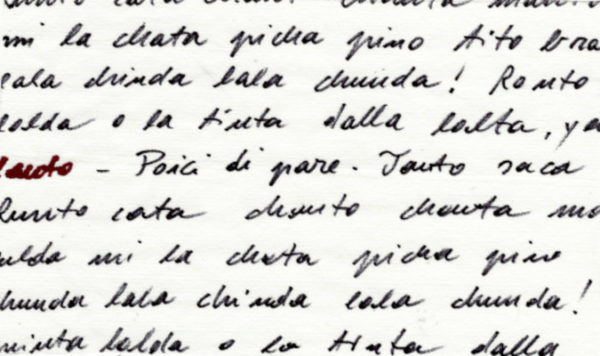 mi la chata picha pino tito bra
lala chinda lala chunda! Ronto
lolda o la tinta dalla lalta, ya
lauto - Poici di pare. Tanto saca
Runto cata chonto chonta ma
ulda mi la chata picha pino
hunda lala chinda lala chunda!
ninta lalda o la tinta dalla